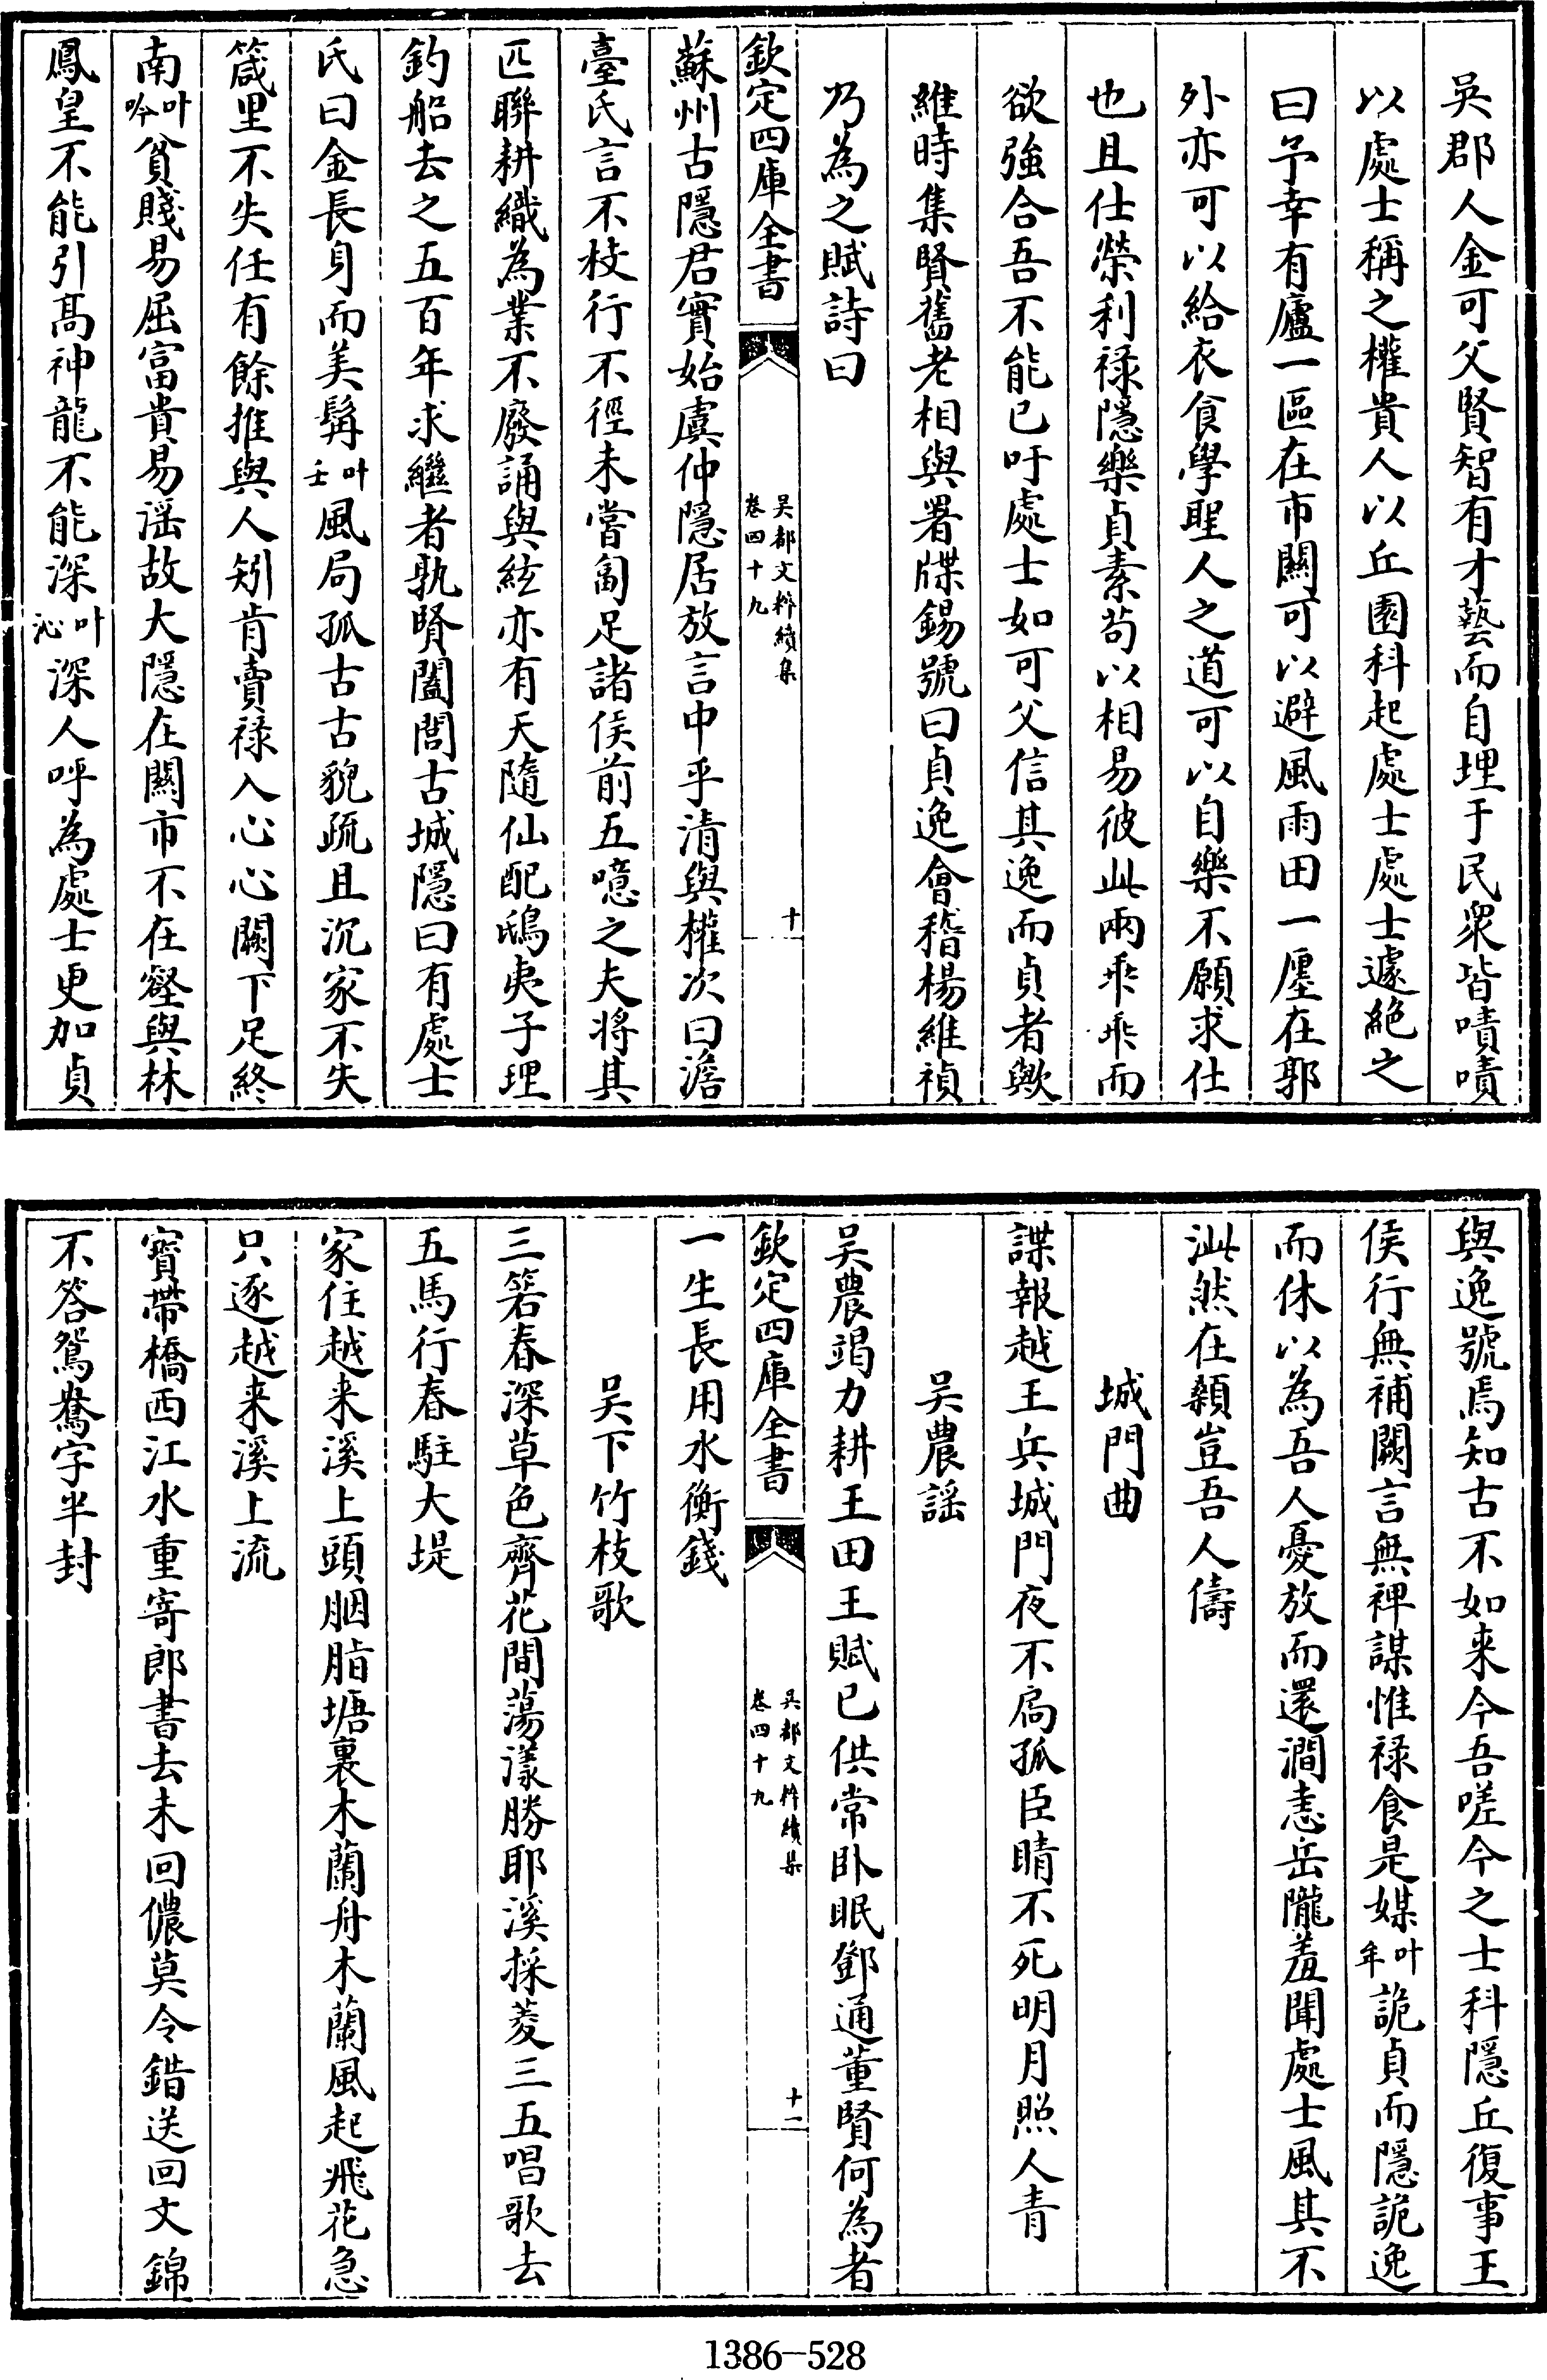 吳郡人金可父賢智有才藝而自埋于民衆皆嘖嘖
以處士稱之權貴人以丘園科起處士處士遽絶之
曰予幸有廬一區在市闗可以避風雨田一廛在郭
外亦可以給衣食學聖人之道可以自樂不願求仕
也且仕榮利禄隱樂貞素苟以相易彼此兩乖乖而
欲強合吾不能已吁處士如可父信其逸而貞者歟
維時集賢舊老相與署牒錫號曰貞逸會稽楊維禎
乃為之賦詩曰
欽定四庫全書
吳都文粹續集
卷四十九
十
蘇州古隱君實始虞仲隱居放言中乎清與權次曰澹
臺氏言不枝行不徑未嘗匐足諸侯前五噫之夫將其
匹聯耕織為業不廢誦與絃亦有天隨仙配鴟夷子理
釣船去之五百年求繼者孰賢闔閭古城隱曰有處士
氏曰金長身而美髯叶壬風局孤古古貌疏且沉家不失
箴里不失任有餘推與人矧肯賣禄入心心闕下足終
南叶吟貧賤易屈富貴易滛故大隱在闗市不在壑與林
鳳皇不能引髙神龍不能深叶沁深人呼為處士更加貞
與逸號焉知古不如来今吾嗟今之士科隱丘復事王
侯行無補闕言無裨謀惟禄食是媒叶年詭貞而隱詭逸
而休以為吾人憂放而還澗恚岳隴羞聞處士風其不
泚然在顙豈吾人儔
城門曲
諜報越王兵城門夜不扃孤臣睛不死明月照人青
吳農謡
吳農竭力耕王田王賦已供常卧眠鄧通董賢何為者
欽定四庫全書
吳都文粹續集
卷四十九
十一
一生長用水衡錢
吳下竹枝歌
三箬春深草色齊花間蕩漾勝耶溪採菱三五唱歌去
五馬行春駐大堤
家住越来溪上頭胭脂塘裏木蘭舟木蘭風起飛花急
只逐越来溪上流
寳帶橋西江水重寄郎書去未回儂莫令錯送回文錦
不答鴛鴦字半封
1386—528